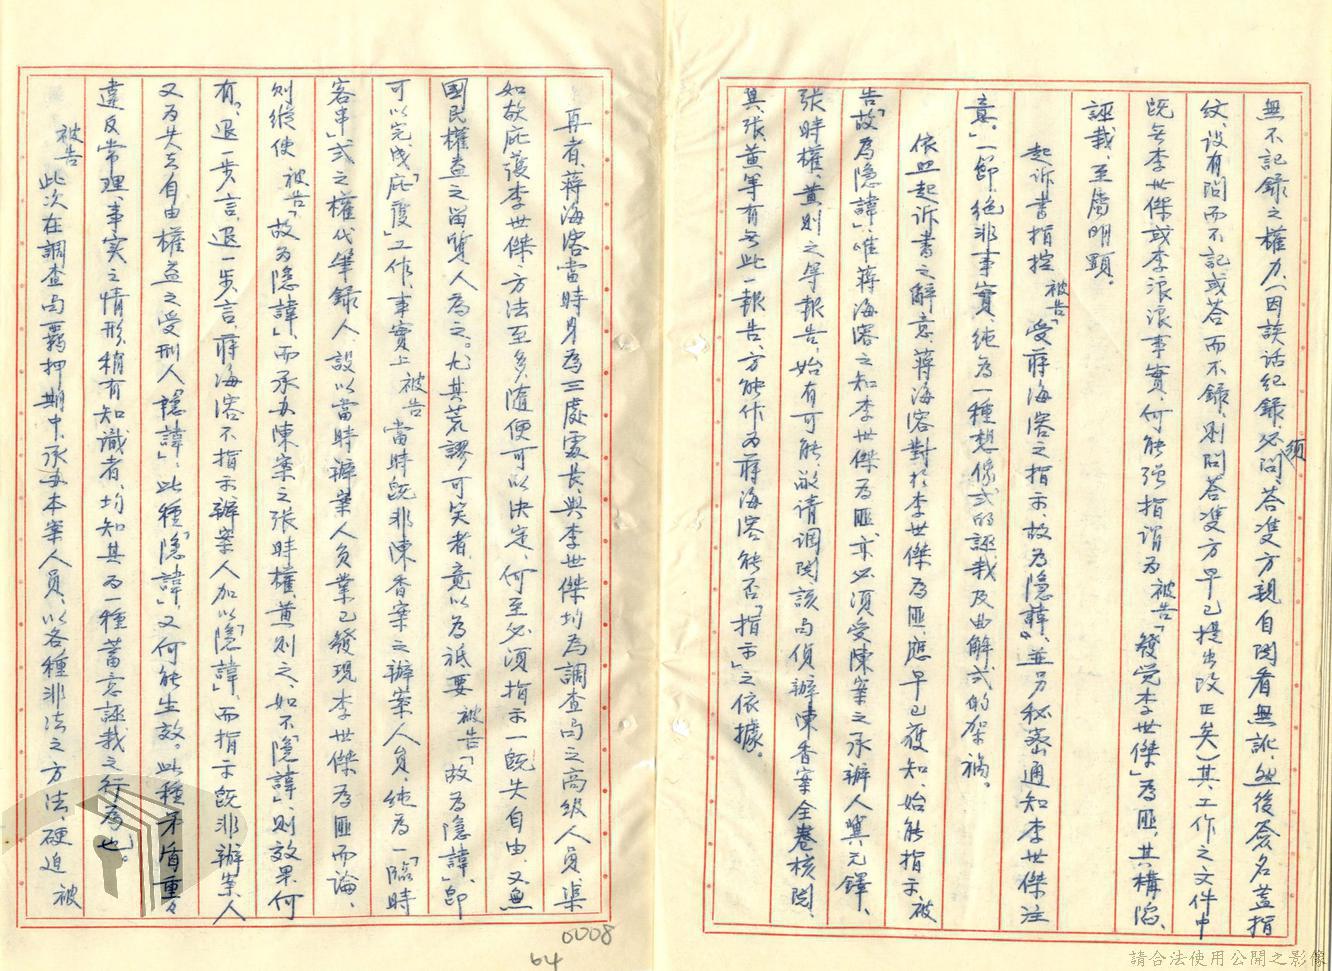 無不記錄之權力、(因談話紀錄、必須問、答雙方親自閱看無訛、然後簽名蓋指
紋、設有問而不記或答而不錄、則問、答雙方早已提出改正矣)其工作之文件中
既無李世傑或李浪浪事實、何能強指謂為被告「發覺李世傑」為匪、其構陷、
誣栽、至屬明顯。
起訴書指控被告「受蔣海溶之指示、故為隱諱、並另秘密通知李世傑注
意。」一節、絕非事實、純為一種想像式的誣栽及曲解式的架禍。
依照起訴書之辭意、蔣海溶對於李世傑為匪、應早已獲知、始能指示被
告「故為隱諱」、唯蔣海溶之知李世傑為匪、亦必須受陳案之承辦人龔元鐸、
張時權、黃則之等報告、始有可能、敬請調閱該局偵辦陳香案全卷核閱、
龔、張、黃等有無此一報告、方能作為蔣海溶能否「指示」之依據。
再者、蔣海溶當時身為三處處長、與李世傑均為調查局之高級人員、渠
如欲庇護李世傑、方法至多、隨便可以決定、何至必須指示一既失自由、又無
國民權益之留質人為之。尤其荒謬可笑者、竟以為祇要被告「故為隱諱」、即
可以完成「庇護」工作、事實上被告當時既非陳香案之辦案人員、純為一「臨時
客串」式之權代筆錄人、設以當時辦案人員業已發現李世傑為匪而論、
則縱使被告「故為隱諱」、而承办陳案之張時權、黃則之、如不「隱諱」、則效果何
有、退一步言、退一步言、蔣海溶不指示辦案人加以「隱諱」、而指示既非辦案人、
又為失去自由權益之受刑人「隱諱」、此種「隱諱」又何能生效。此種矛盾重重、
違反常理、事实之情形、稍有知識者、均知其為一種蓄意誣栽之行為也。
被告此次在調查局羈押期中、承办本案人員、以各種非法之方法、硬迫被
0008
64
請合法使用公開之影像